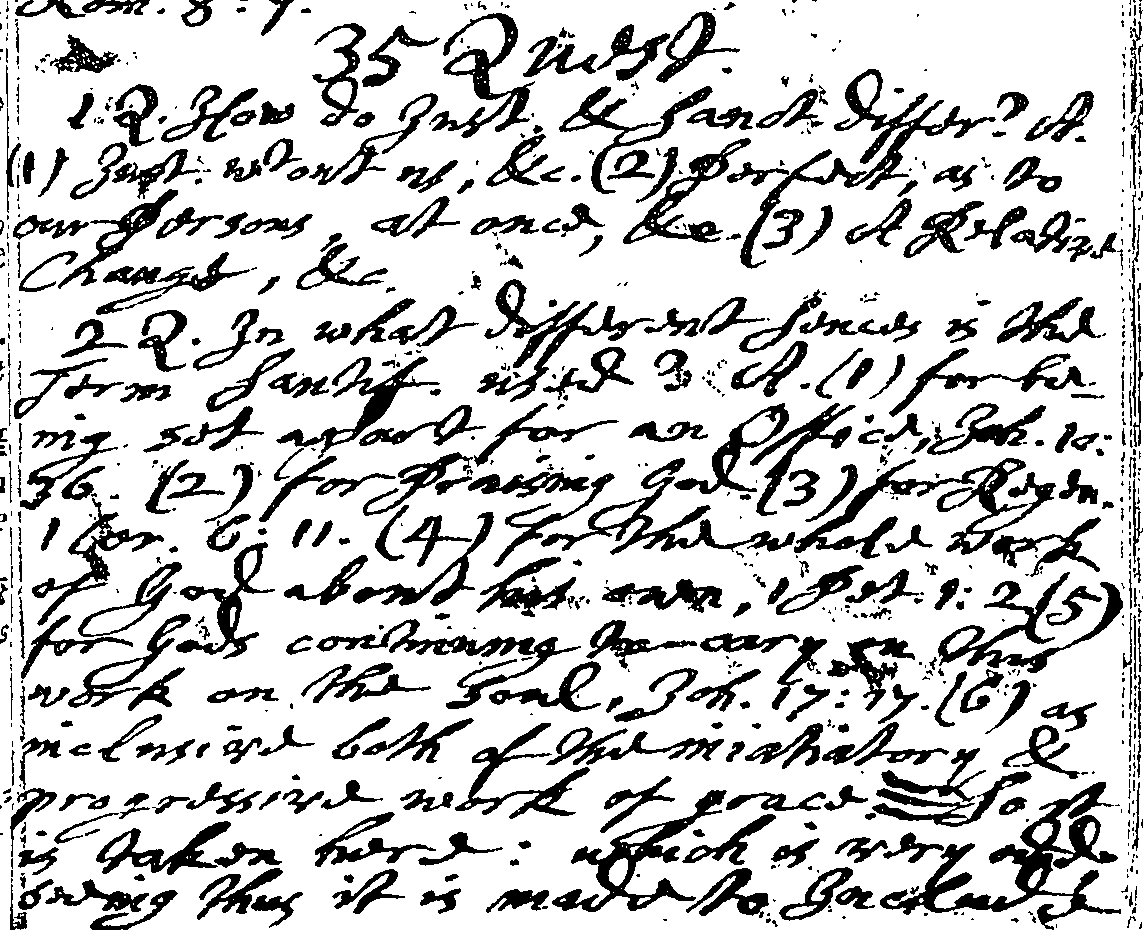 Rom. 8: 7.
35 Quest.
1 Q. How do Just. & Sanct. differ? A.
(1) Just. wtout us, &c. (2) Perfect, as to
our Persons, at once, &c. (3) A Relative
Change, &c.
2 Q. In what different sences is the
Term Santif. used? A. (1) for be-
ing set apart for an Office, Joh. 10:
36. (2) for Praising God. (3) for Regen.
1 Cor. 6: 11. (4) for the whole work
of God about his own, 1 Pet. 1: 2 (5)
for Gods continuing to cary on this
work on the soul, Joh. 17: 17. (6) as
inclusive both of the iniatiatory &
progressive work of grace. So it
is taken here: which is very
seeing thus it is made to Include